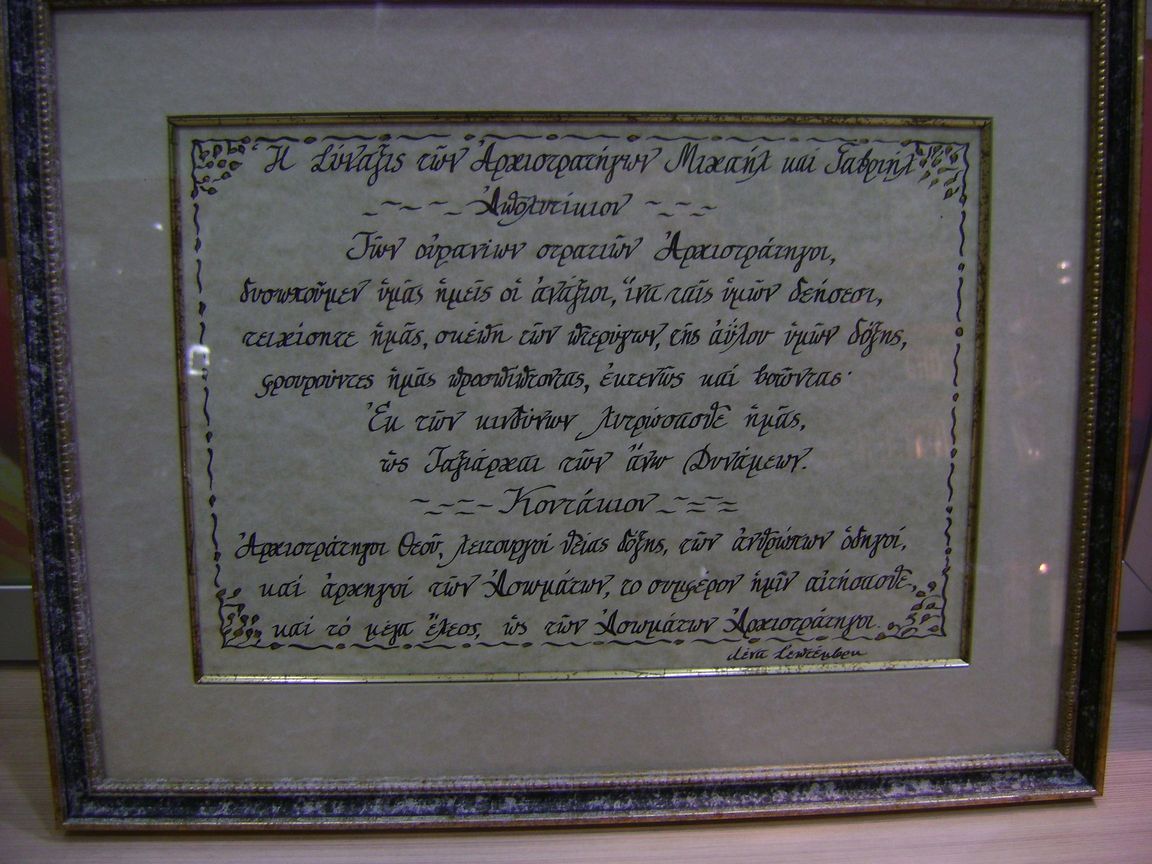 Ἡ Σύναξις τῶν Ἀρχιστρατήγων Μιχαήλ καί Γαβριήλ
Ἀπολυτίκιον
Τῶν οὐρανίων στρατιῶν Ἀρχιστράτηγοι,
δυσωποῦμεν ὑμᾶς ἡμεῖς οἱ ἀνάξιοι, ἵνα ταῖς ὑμῶν δεήσεσι,
τειχίσητε ἡμᾶς, σκέπη τῶν πτερύγων, τῆς ἀΰλου ὑμῶν δόξης,
φρουροῦντες ἡμᾶς προσπίπτοντας, ἐκτενῶς καί βοῶντας·
Ἐκ τῶν κινδύνων λυτρώσασθε ἡμᾶς,
ὡς Ταξιάρχαι τῶν ἄνω Δυνάμεων.
Κοντάκιον
Ἀρχιστράτηγοι Θεοῦ, λειτουργοί θείας δόξης, τῶν ἀνθρώπων ὁδηγοί,
καί ἀρχηγοί τῶν Ἀσωμάτων, το συμφερον ἡμῖν αἰτήσασθε,
καί τό μέγα ἔλεος, ὡς τῶν Ἀσωμάτων Ἀρχιστράτηγοι.
Λένα